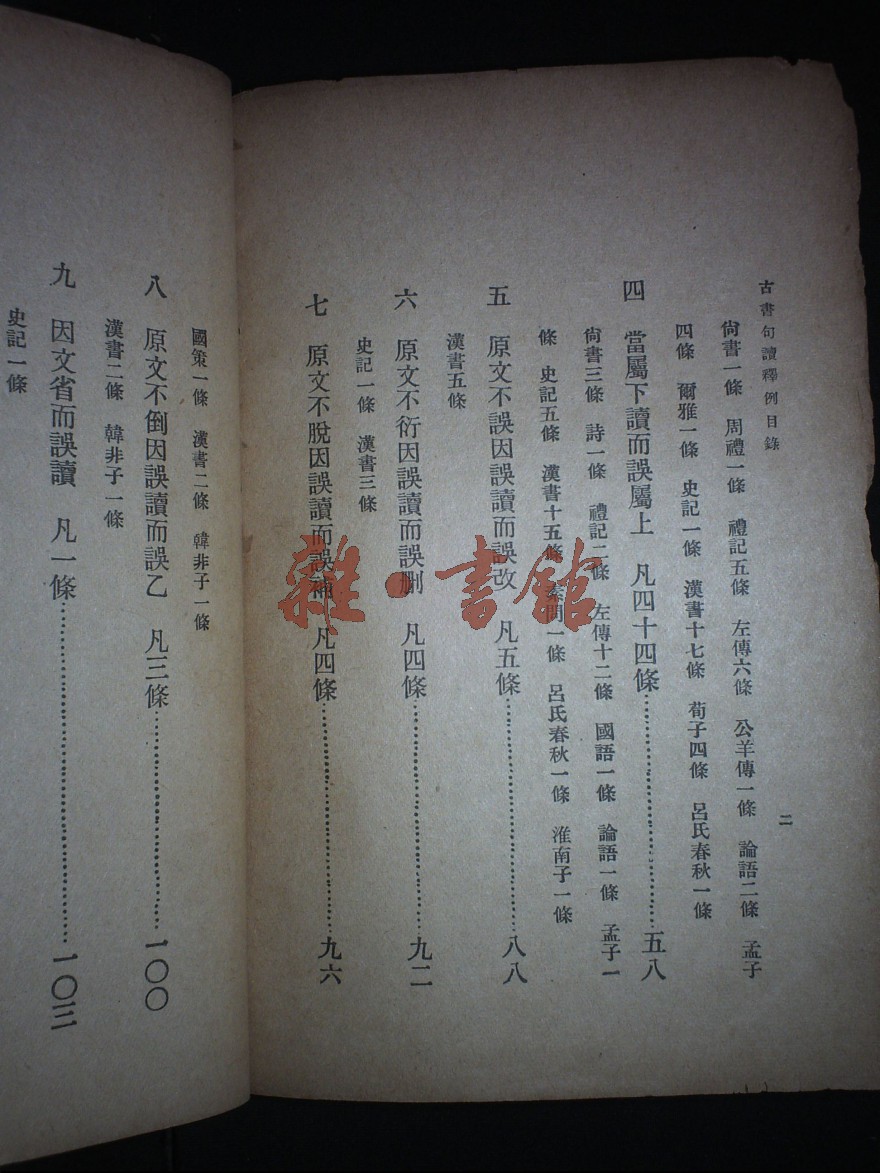 古書句讀釋例目錄
二
尙書一條　周禮一條　禮記五條　左傳六條　公羊傳一條　論語二條　孟子
四條　爾雅一條　史記一條　漢書十七條　荀子四條　呂氏春秋一條
四　當屬下讀而誤屬上　凡四十四條⋯⋯⋯⋯⋯⋯五八
尙書三條　詩一條　禮記二條　左傳十二條　國語一條　論語一條　孟子一
條　史記五條　漢書十五條　素問一條　呂氏春秋一條　淮南子一條
五　原文不誤因誤讀而誤改　凡五條⋯⋯⋯⋯⋯⋯八八
漢書五條
六　原文不衍因誤讀而誤刪　凡四條⋯⋯⋯⋯⋯⋯九二
史記一條　漢書三條
七　原文不脫因誤讀而誤補　凡四條⋯⋯⋯⋯⋯⋯九六
國策一條　漢書二條　韓非子一條
八　原文不倒因誤讀而誤乙　凡三條⋯⋯⋯⋯⋯⋯一〇〇
漢書二條　韓非子一條
九　因文省而誤讀　凡一條⋯⋯⋯⋯⋯⋯一〇三
史記一條
雜·書館